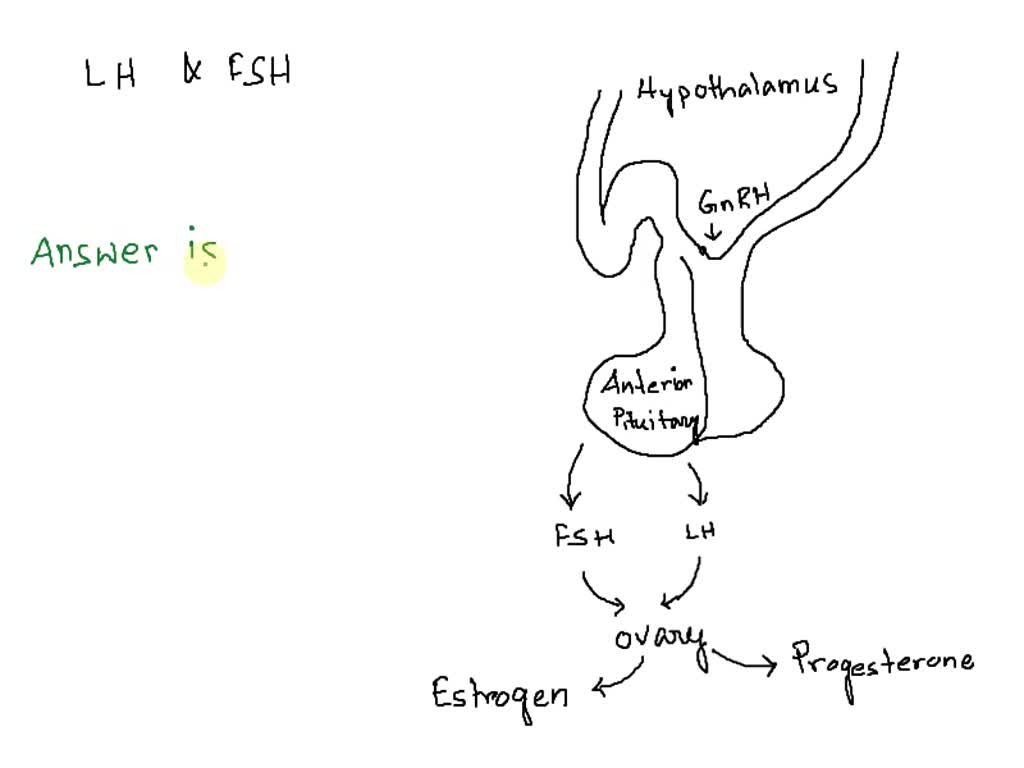 LH & FSH
Hypothalamus
GnRH
Answer is
Anterior
Pituitary
FSH
LH
ovary
Progesterone
Estrogen